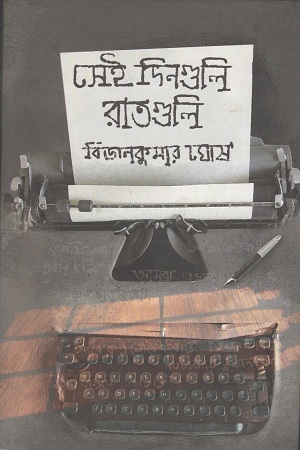 সেই দিনগুলি
রাতগুলি
বিজনকুমার ঘোষ